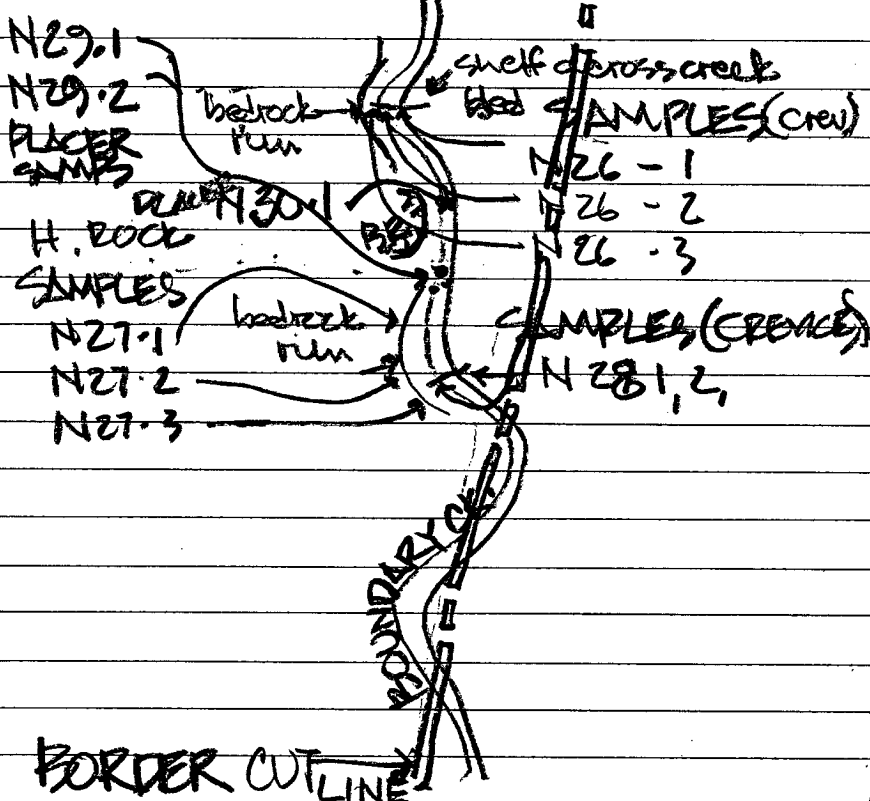 N29.1
N29.2
PLACER
SAMPS
shelf across creek
bed
bedrock
rim
SAMPLES (crev)
N26 - 1
N26 - 2
N26 - 3
N30.1
H. ROCK
SAMPLES
N27.1
N27.2
N27.3
bedrock
rim
SAMPLES (CREVICE)
N 28 1, 2,
BOUNDARY CK.
BORDER CUT
LINE